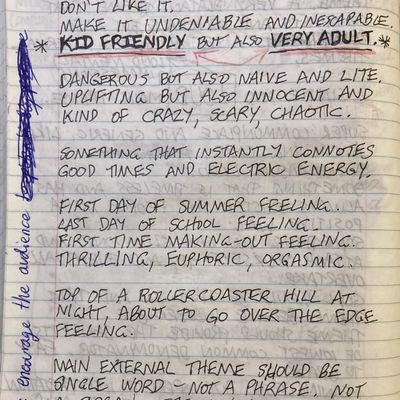 DON'T LIKE IT.
MAKE IT UNDENIABLE AND INESCAPABLE.
* KID FRIENDLY BUT ALSO VERY ADULT. *
DANGEROUS BUT ALSO NAIVE AND LITE.
UPLIFTING BUT ALSO INNOCENT AND
KIND OF CRAZY, SCARY, CHAOTIC.
SOMETHING THAT INSTANTLY CONNOTES
GOOD TIMES AND ELECTRIC ENERGY.
FIRST DAY OF SUMMER FEELING.
LAST DAY OF SCHOOL FEELING.
FIRST TIME MAKING-OUT FEELING.
THRILLING, EUPHORIC, ORGASMIC.
TOP OF A ROLLERCOASTER HILL AT
NIGHT, ABOUT TO GO OVER THE EDGE
FEELING.
MAIN EXTERNAL THEME SHOULD BE
SINGLE WORD - NOT A PHRASE. NOT
encourage the audience